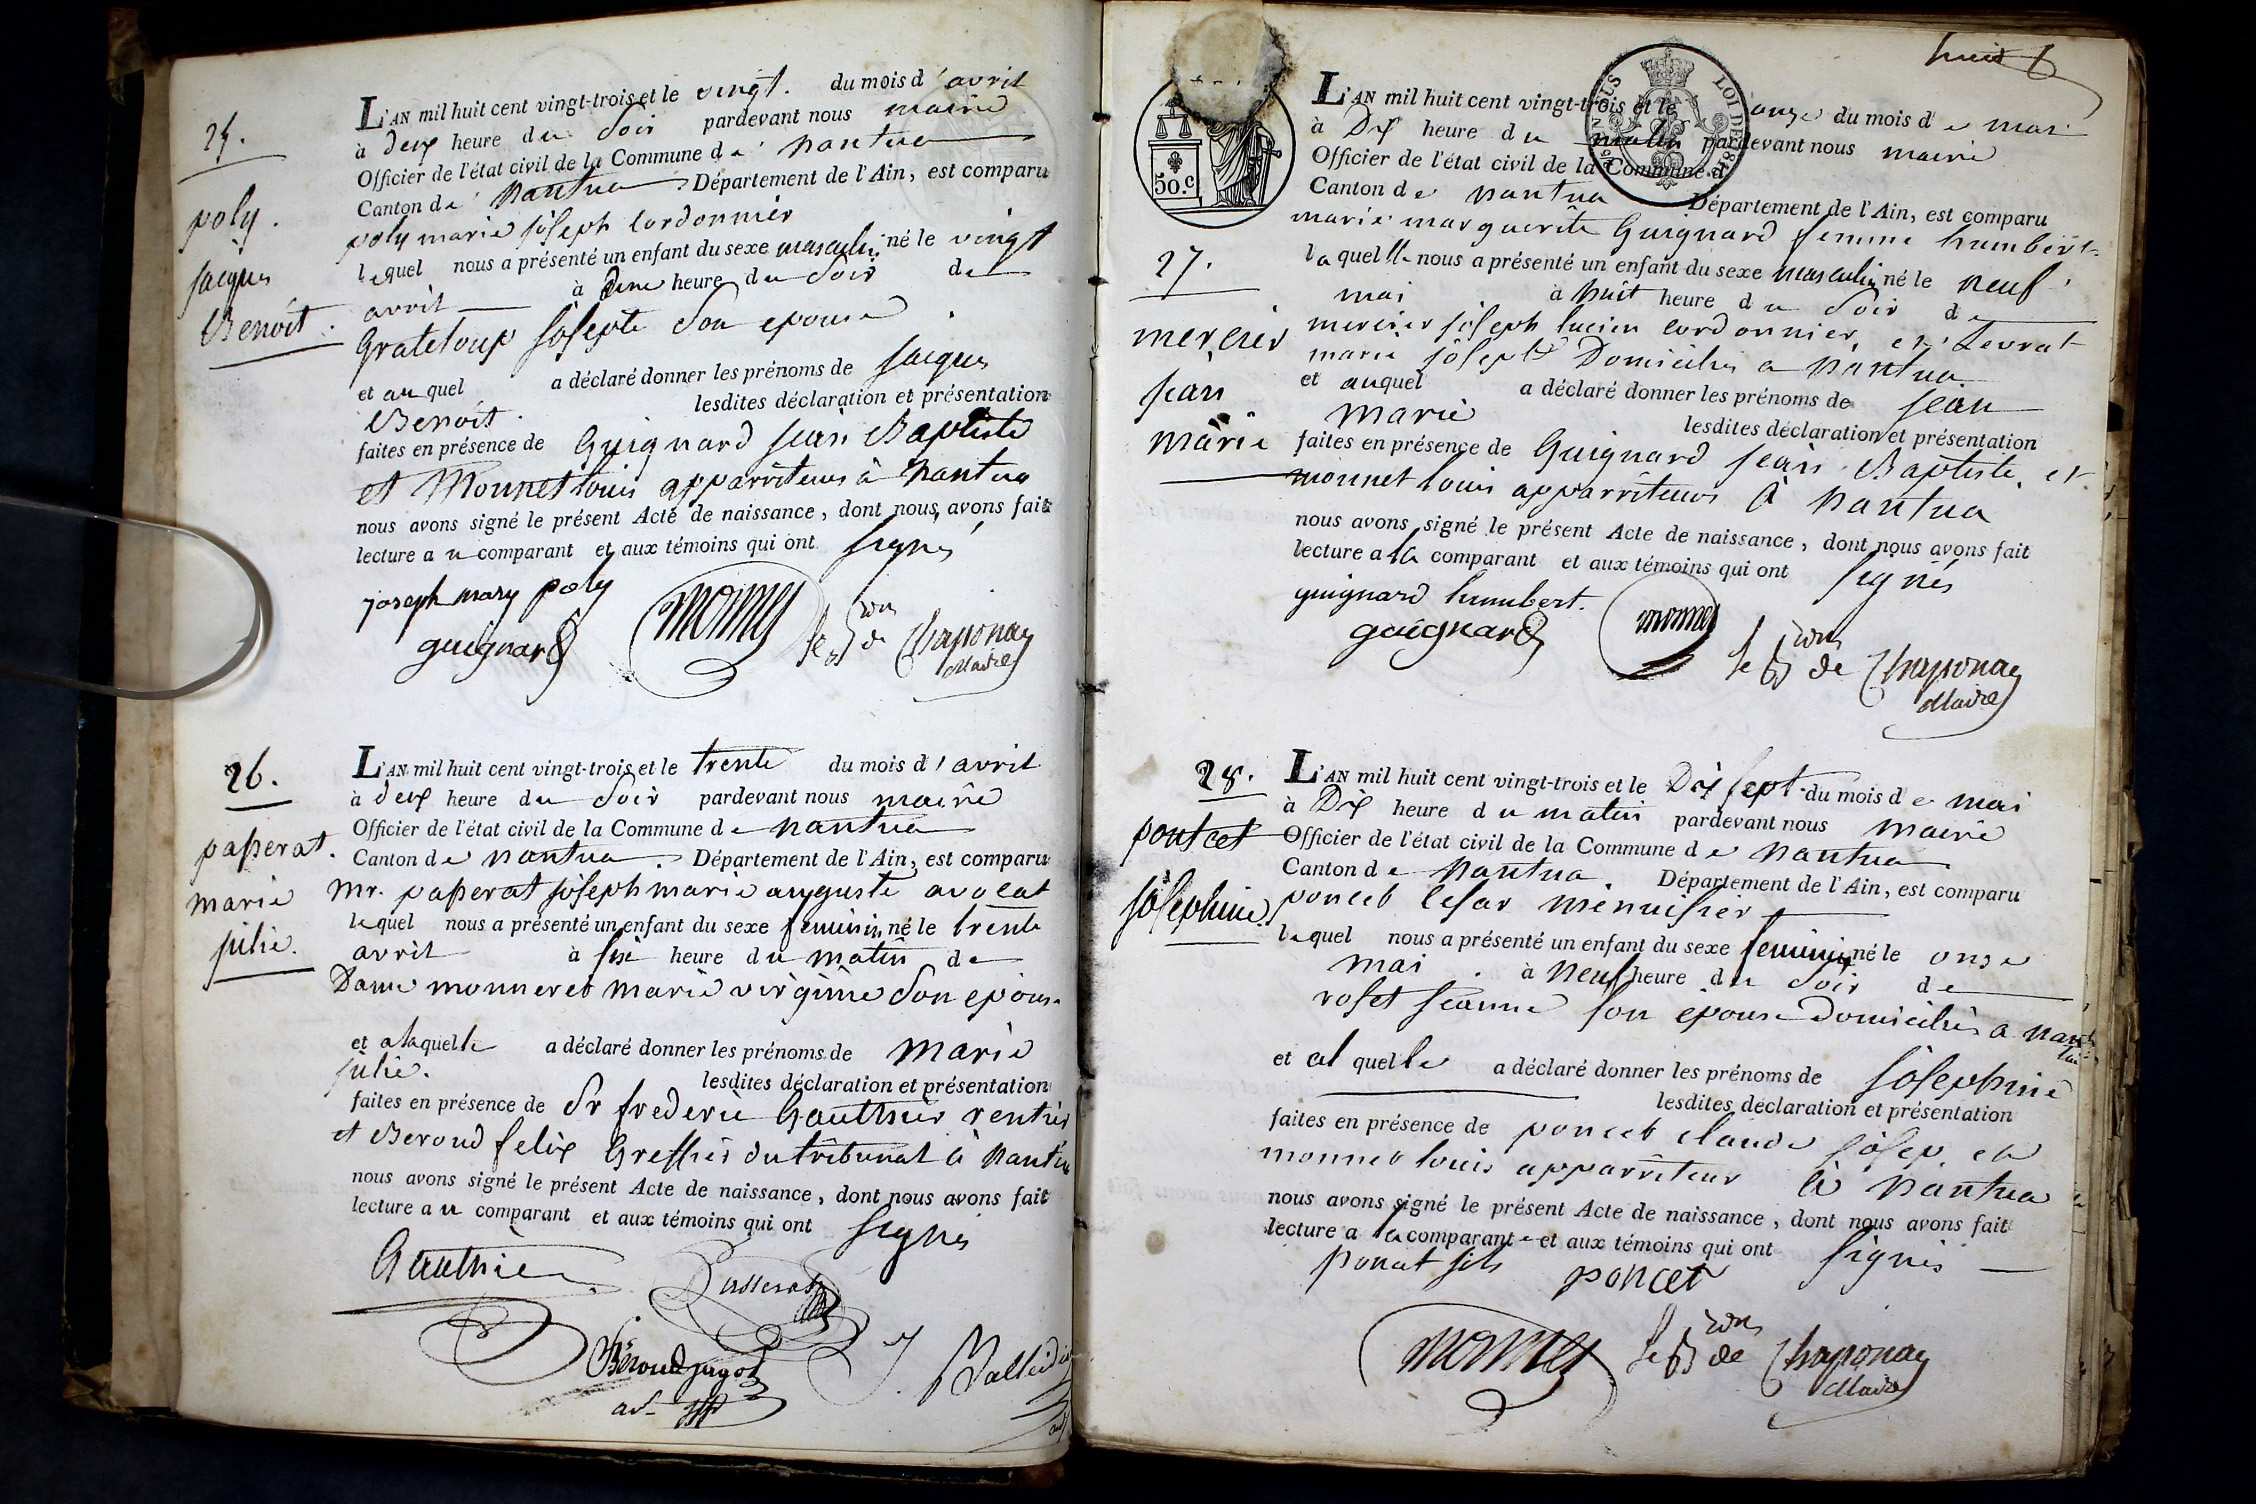 25.
poly.
jacques
Benoit.
L'AN mil huit cent vingt-trois et le vingt. du mois d'avril
à deux heure du Soir pardevant nous maire
Officier de l'état civil de la Commune de nantua
Canton de nantua Département de l'Ain, est comparu
poly marie joseph Cordonnier
lequel nous a présenté un enfant du sexe masculin né le vingt
avril à une heure du Soir de
Grateloup josephte Son epouse
et auquel a déclaré donner les prénoms de jacques
Benoit. lesdites déclaration et présentation
faites en présence de Guignard jean Baptiste
et Monnet louis apparriteurs à nantua
nous avons signé le présent Acte de naissance, dont nous avons fait
lecture au comparant et aux témoins qui ont signés
joseph mary poly
guignard monnet le Bon de Chaponay
Maire
26.
passerat.
marie
julie.
L'AN mil huit cent vingt-trois et le trente du mois d'avril
à deux heure du Soir pardevant nous maire
Officier de l'état civil de la Commune de nantua
Canton de nantua. Département de l'Ain, est comparu
mr. passerat joseph marie auguste avocat
lequel nous a présenté un enfant du sexe feminin né le trente
avril à six heure du matin de
Dame monneret marie virginie Son epouse
et a laquelle a déclaré donner les prénoms de marie
julie. lesdites déclaration et présentation
faites en présence de Sr frederic Gauthier rentier
et Beroud felix Greffier du tribunal à nantua
nous avons signé le présent Acte de naissance, dont nous avons fait
lecture au comparant et aux témoins qui ont signés
Gauthier
Passerat
Béroud
huit
50.c
LOI DE 1816
27.
mercier
jean
marie
L'AN mil huit cent vingt-trois et le onze du mois de mai
à Dix heure du matin pardevant nous maire
Officier de l'état civil de la Commune d
Canton de nantua Département de l'Ain, est comparu
marie marguerite Guignard femme humbert
laquelle nous a présenté un enfant du sexe masculin né le neuf
mai à huit heure du Soir de
mercier joseph lucien cordonnier, et Levrat
marie josephte Domiciliés a nantua.
et auquel a déclaré donner les prénoms de jean
marie lesdites déclaration et présentation
faites en présence de Guignard jean Baptiste, et
monnet louis apparriteurs à nantua
nous avons signé le présent Acte de naissance, dont nous avons fait
lecture a la comparant et aux témoins qui ont signés
guignard humbert.
guignard monnet le Bon de Chaponay
Maire
28.
pontcet
josephine.
L'AN mil huit cent vingt-trois et le Dix sept du mois de mai
à Dix heure du matin pardevant nous maire
Officier de l'état civil de la Commune de nantua
Canton de nantua. Département de l'Ain, est comparu
poncet Cesar menuisier
lequel nous a présenté un enfant du sexe feminin né le onze
mai. à neuf heure du Soir de
roset jeanne son epouse Domiciliés a nantua
et al quelle a déclaré donner les prénoms de josephine
lesdites déclaration et présentation
faites en présence de poncet claude josep et
monnet louis apparriteur à nantua
nous avons signé le présent Acte de naissance, dont nous avons fait
lecture a la comparant et aux témoins qui ont signés
poncet fils poncet
monnet le Bon de Chaponay
Maire